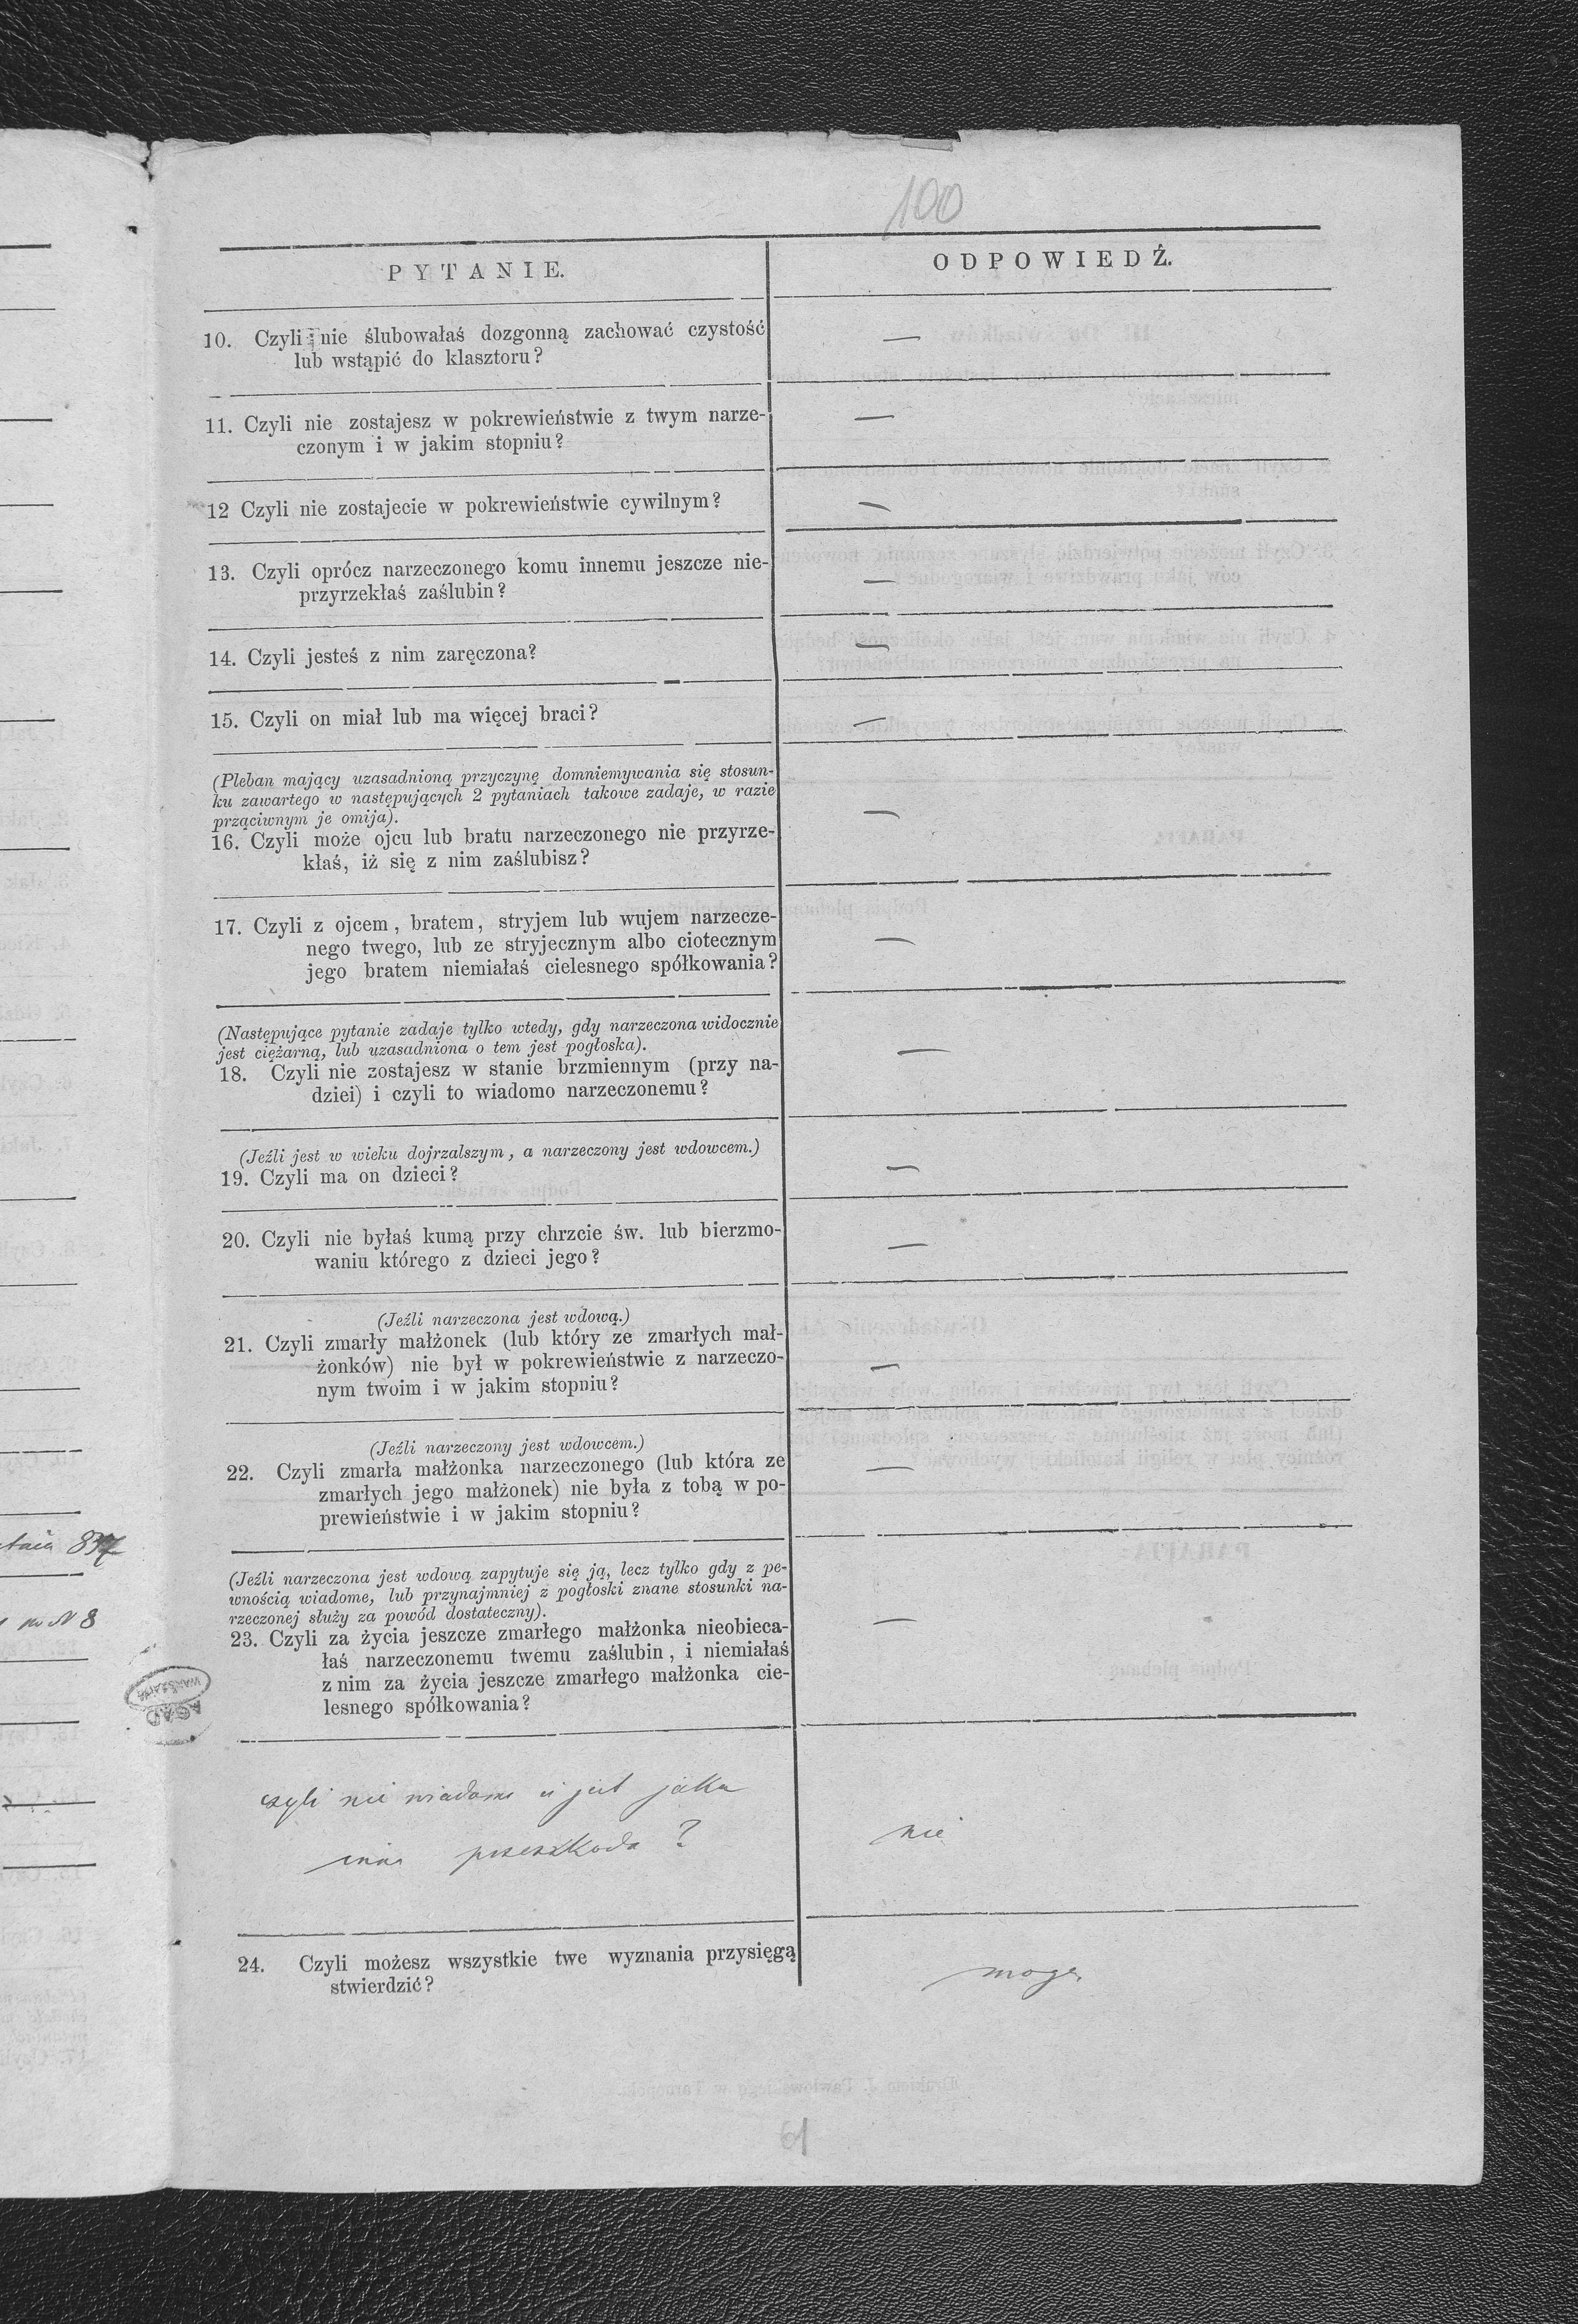 100
PYTANIE.
ODPOWIEDŹ.
10. Czyli nie ślubowałaś dozgonną zachować czystość
lub wstąpić do klasztoru?
—
11. Czyli nie zostajesz w pokrewieństwie z twym narze-
czonym i w jakim stopniu?
—
12 Czyli nie zostajecie w pokrewieństwie cywilnym?
—
13. Czyli oprócz narzeczonego komu innemu jeszcze nie-
przyrzekłaś zaślubin?
—
14. Czyli jesteś z nim zaręczona?
—
15. Czyli on miał lub ma więcej braci?
—
(Pleban mający uzasadnioną przyczynę domniemywania się stosun-
ku zawartego w następujących 2 pytaniach takowe zadaje, w razie
prząciwnym je omija).
16. Czyli może ojcu lub bratu narzeczonego nie przyrze-
kłaś, iż się z nim zaślubisz?
—
17. Czyli z ojcem, bratem, stryjem lub wujem narzecze-
nego twego, lub ze stryjecznym albo ciotecznym
jego bratem niemiałaś cielesnego spółkowania?
—
(Następujące pytanie zadaje tylko wtedy, gdy narzeczona widocznie
jest ciężarną, lub uzasadniona o tem jest pogłoska).
18. Czyli nie zostajesz w stanie brzmiennym (przy na-
dziei) i czyli to wiadomo narzeczonemu?
—
(Jeźli jest w wieku dojrzalszym, a narzeczony jest wdowcem.)
19. Czyli ma on dzieci?
—
20. Czyli nie byłaś kumą przy chrzcie św. lub bierzmo-
waniu którego z dzieci jego?
—
(Jeźli narzeczona jest wdową.)
21. Czyli zmarły małżonek (lub który ze zmarłych mał-
żonków) nie był w pokrewieństwie z narzeczo-
nym twoim i w jakim stopniu?
—
(Jeźli narzeczony jest wdowcem.)
22. Czyli zmarła małżonka narzeczonego (lub która ze
zmarłych jego małżonek) nie była z tobą w po-
prewieństwie i w jakim stopniu?
—
(Jeźli narzeczona jest wdową zapytuje się ją, lecz tylko gdy z pe-
wnością wiadome, lub przynajmniej z pogłoski znane stosunki na-
rzeczonej służy za powód dostateczny).
23. Czyli za życia jeszcze zmarłego małżonka nieobieca-
łaś narzeczonemu twemu zaślubin, i niemiałaś
z nim za życia jeszcze zmarłego małżonka cie-
lesnego spółkowania?
—
czyli nie wiadome iż jest jaka
inna przeszkoda?
nie
24. Czyli możesz wszystkie twe wyznania przysięgą
stwierdzić?
mogę